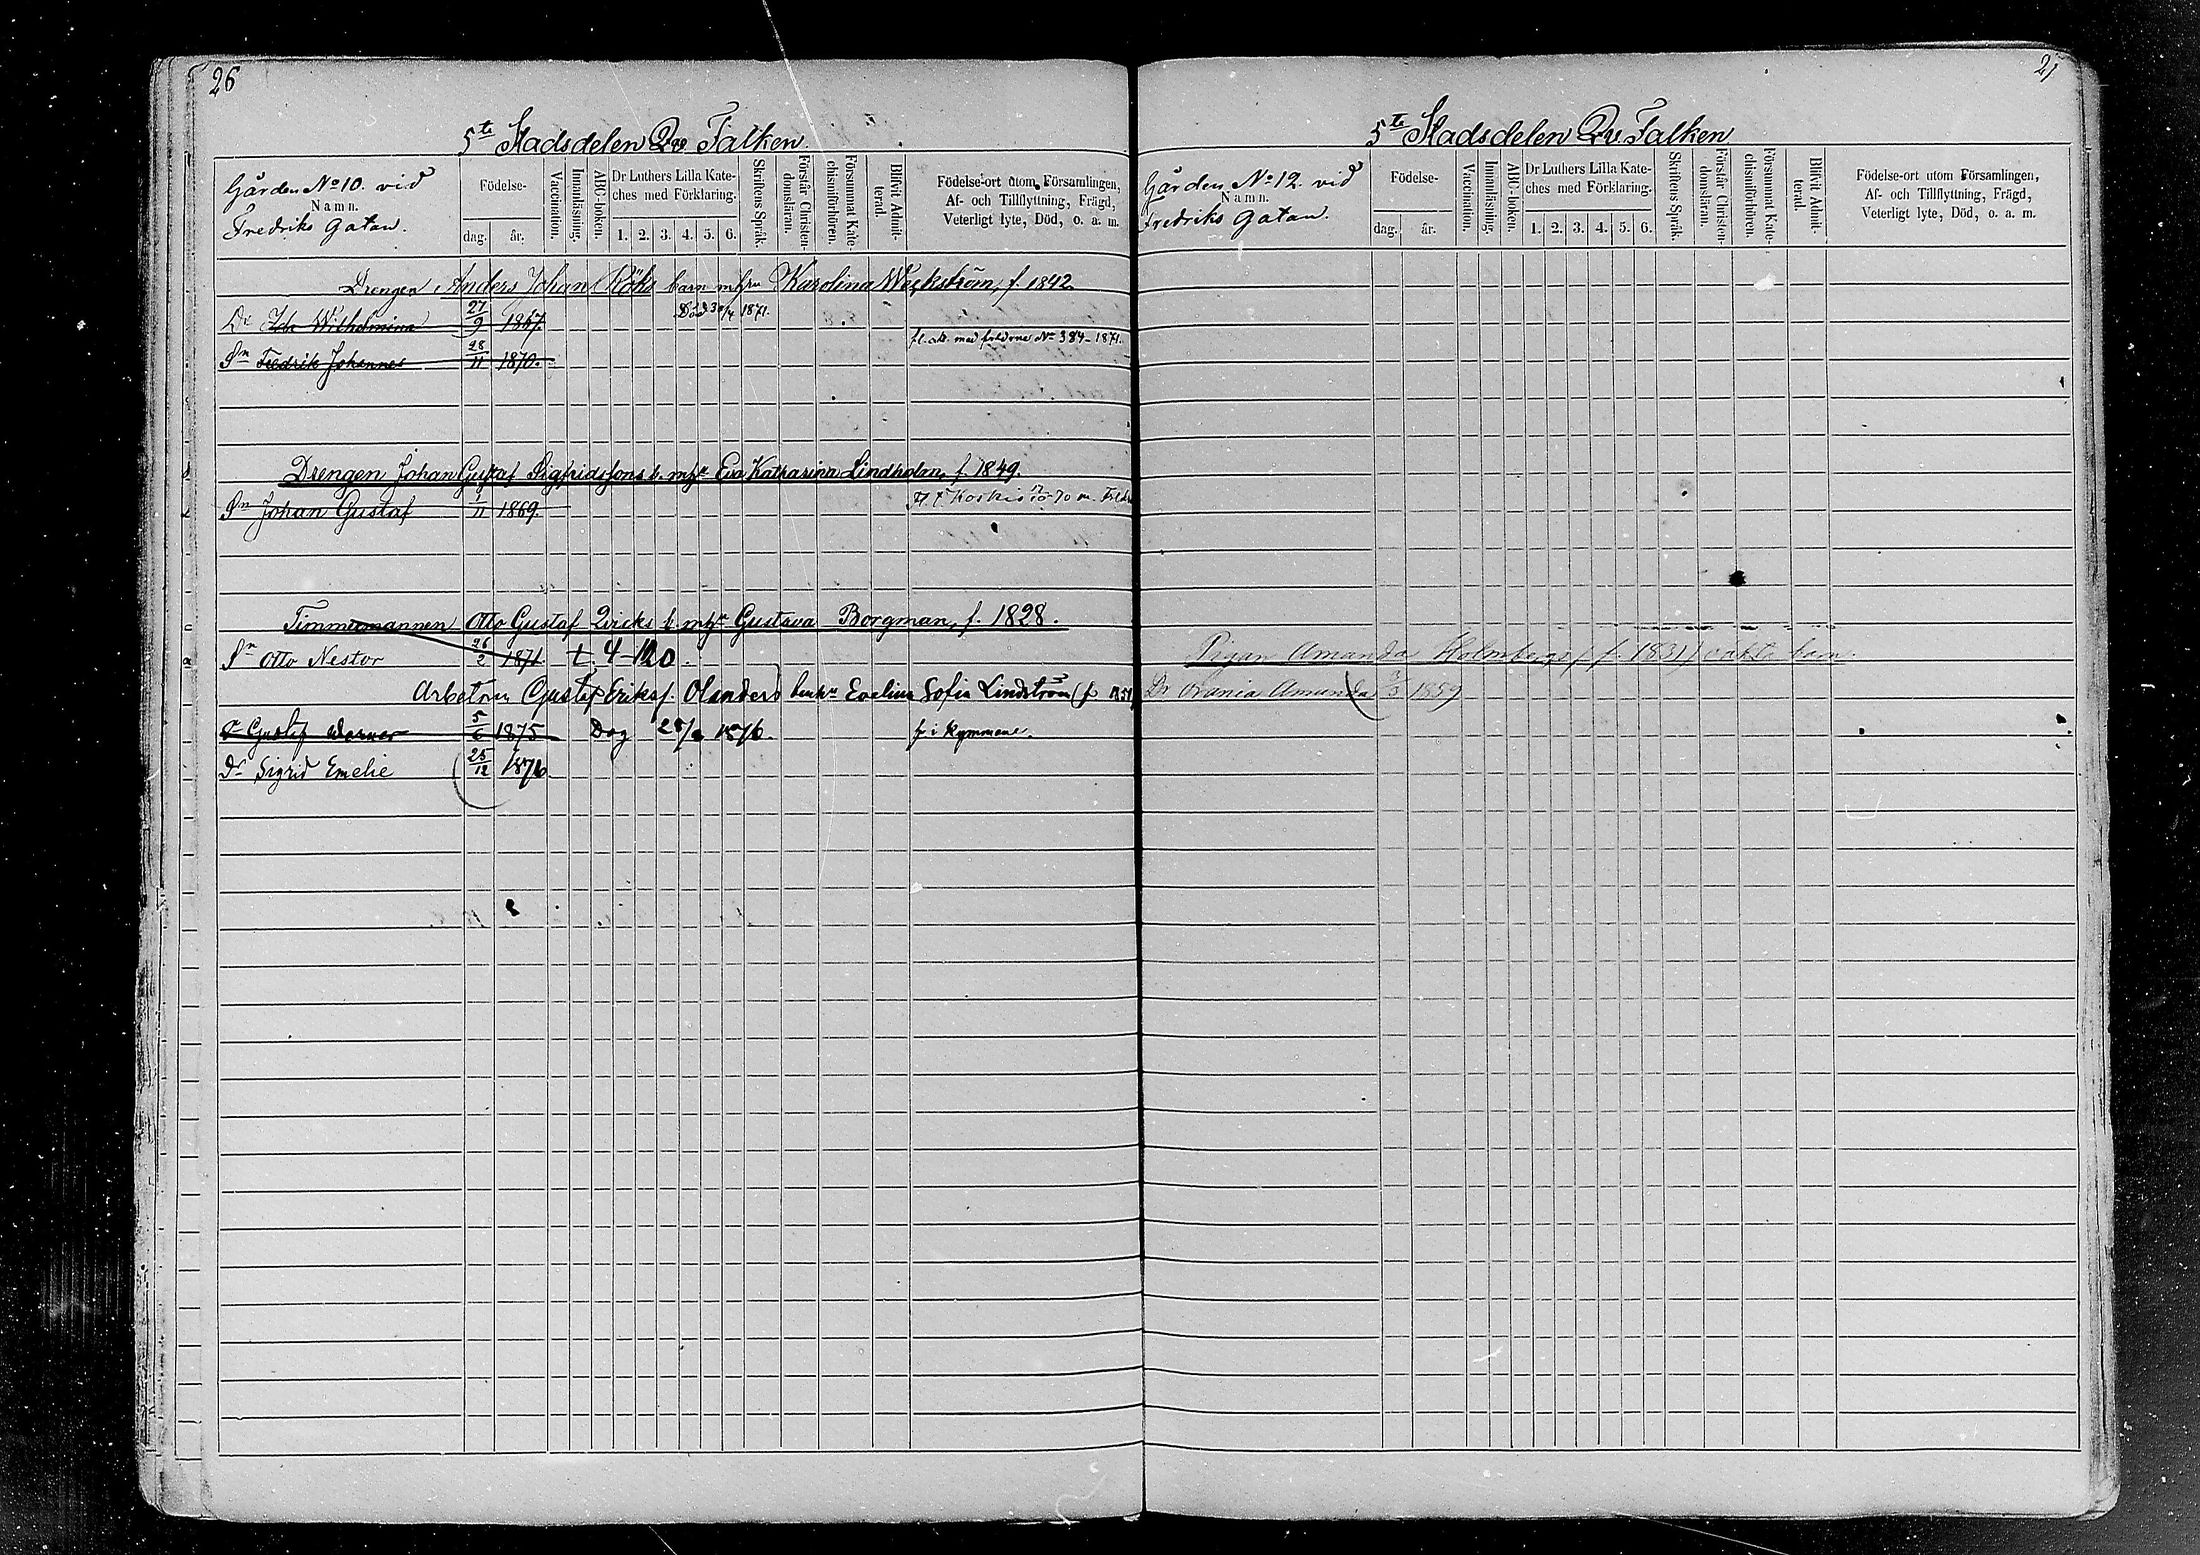 26
5te Stadsdelen Qv Falken.
Gården No 10. vid
Namn.
Fredriks gatan.
Födelse-
dag. år.
Vaccination.
Innanläsning.
ABC-boken.
Dr Luthers Lilla Kate-
ches med Förklaring.
1. 2. 3. 4. 5. 6.
Skriftens Språk.
Förstår Christen-
domsläran.
Försummat Kate-
chismiförhören.
Blifvit Admit-
terad.
Födelse-ort utom Församlingen,
Af- och Tillflyttning, Frägd,
Veterligt lyte, Död, o. a. m.
Drengen Anders Johan Röks barn m hru Karolina Weckström, f. 1842
Dr Ida Wilhelmina 27/9 1867. Död 30/4 1871.
Sn Fredrik Johannes 28/11 1870. fl. att. med föräldrne No 384-1871.
Drengen Johan Gustaf Sigfridssons b. m hr Eva Katharina Lindholm, f. 1849.
Sn Johan Gustaf 1/11 1869. Fl. t. Koskis 70 m. Föräldr
Timmermannen Otto Gustaf Qvicks b. m hr Gustava Borgman, f. 1828.
Sn Otto Nestor 26/2 1871 t. 4-120.
Arbetren Gustaf Eriksf. Olanders Evelina Sofia Lindström (f 1851
Sn Gustaf Werner 5/6 1875 Dog 1876. f i Kymmene.
Dr Sigrid Emelie 25/12 1876
27
5te Stadsdelen Qv. Falken
Gården No 12. vid
Namn.
Fredriks gatan.
Födelse-
dag. år.
Vaccination.
Innanläsning.
ABC-boken.
Dr Luthers Lilla Kate-
ches med Förklaring.
1. 2. 3. 4. 5. 6.
Skriftens Språk.
Förstår Christen-
domsläran.
Försummat Kate-
chismiförhören.
Blifvit Admit-
terad.
Födelse-ort utom Församlingen,
Af- och Tillflyttning, Frägd,
Veterligt lyte, Död, o. a. m.
Pigan Amanda Holmbergs (f. 1831) oäkta barn.
Dr Urania Amanda 3/3 1859